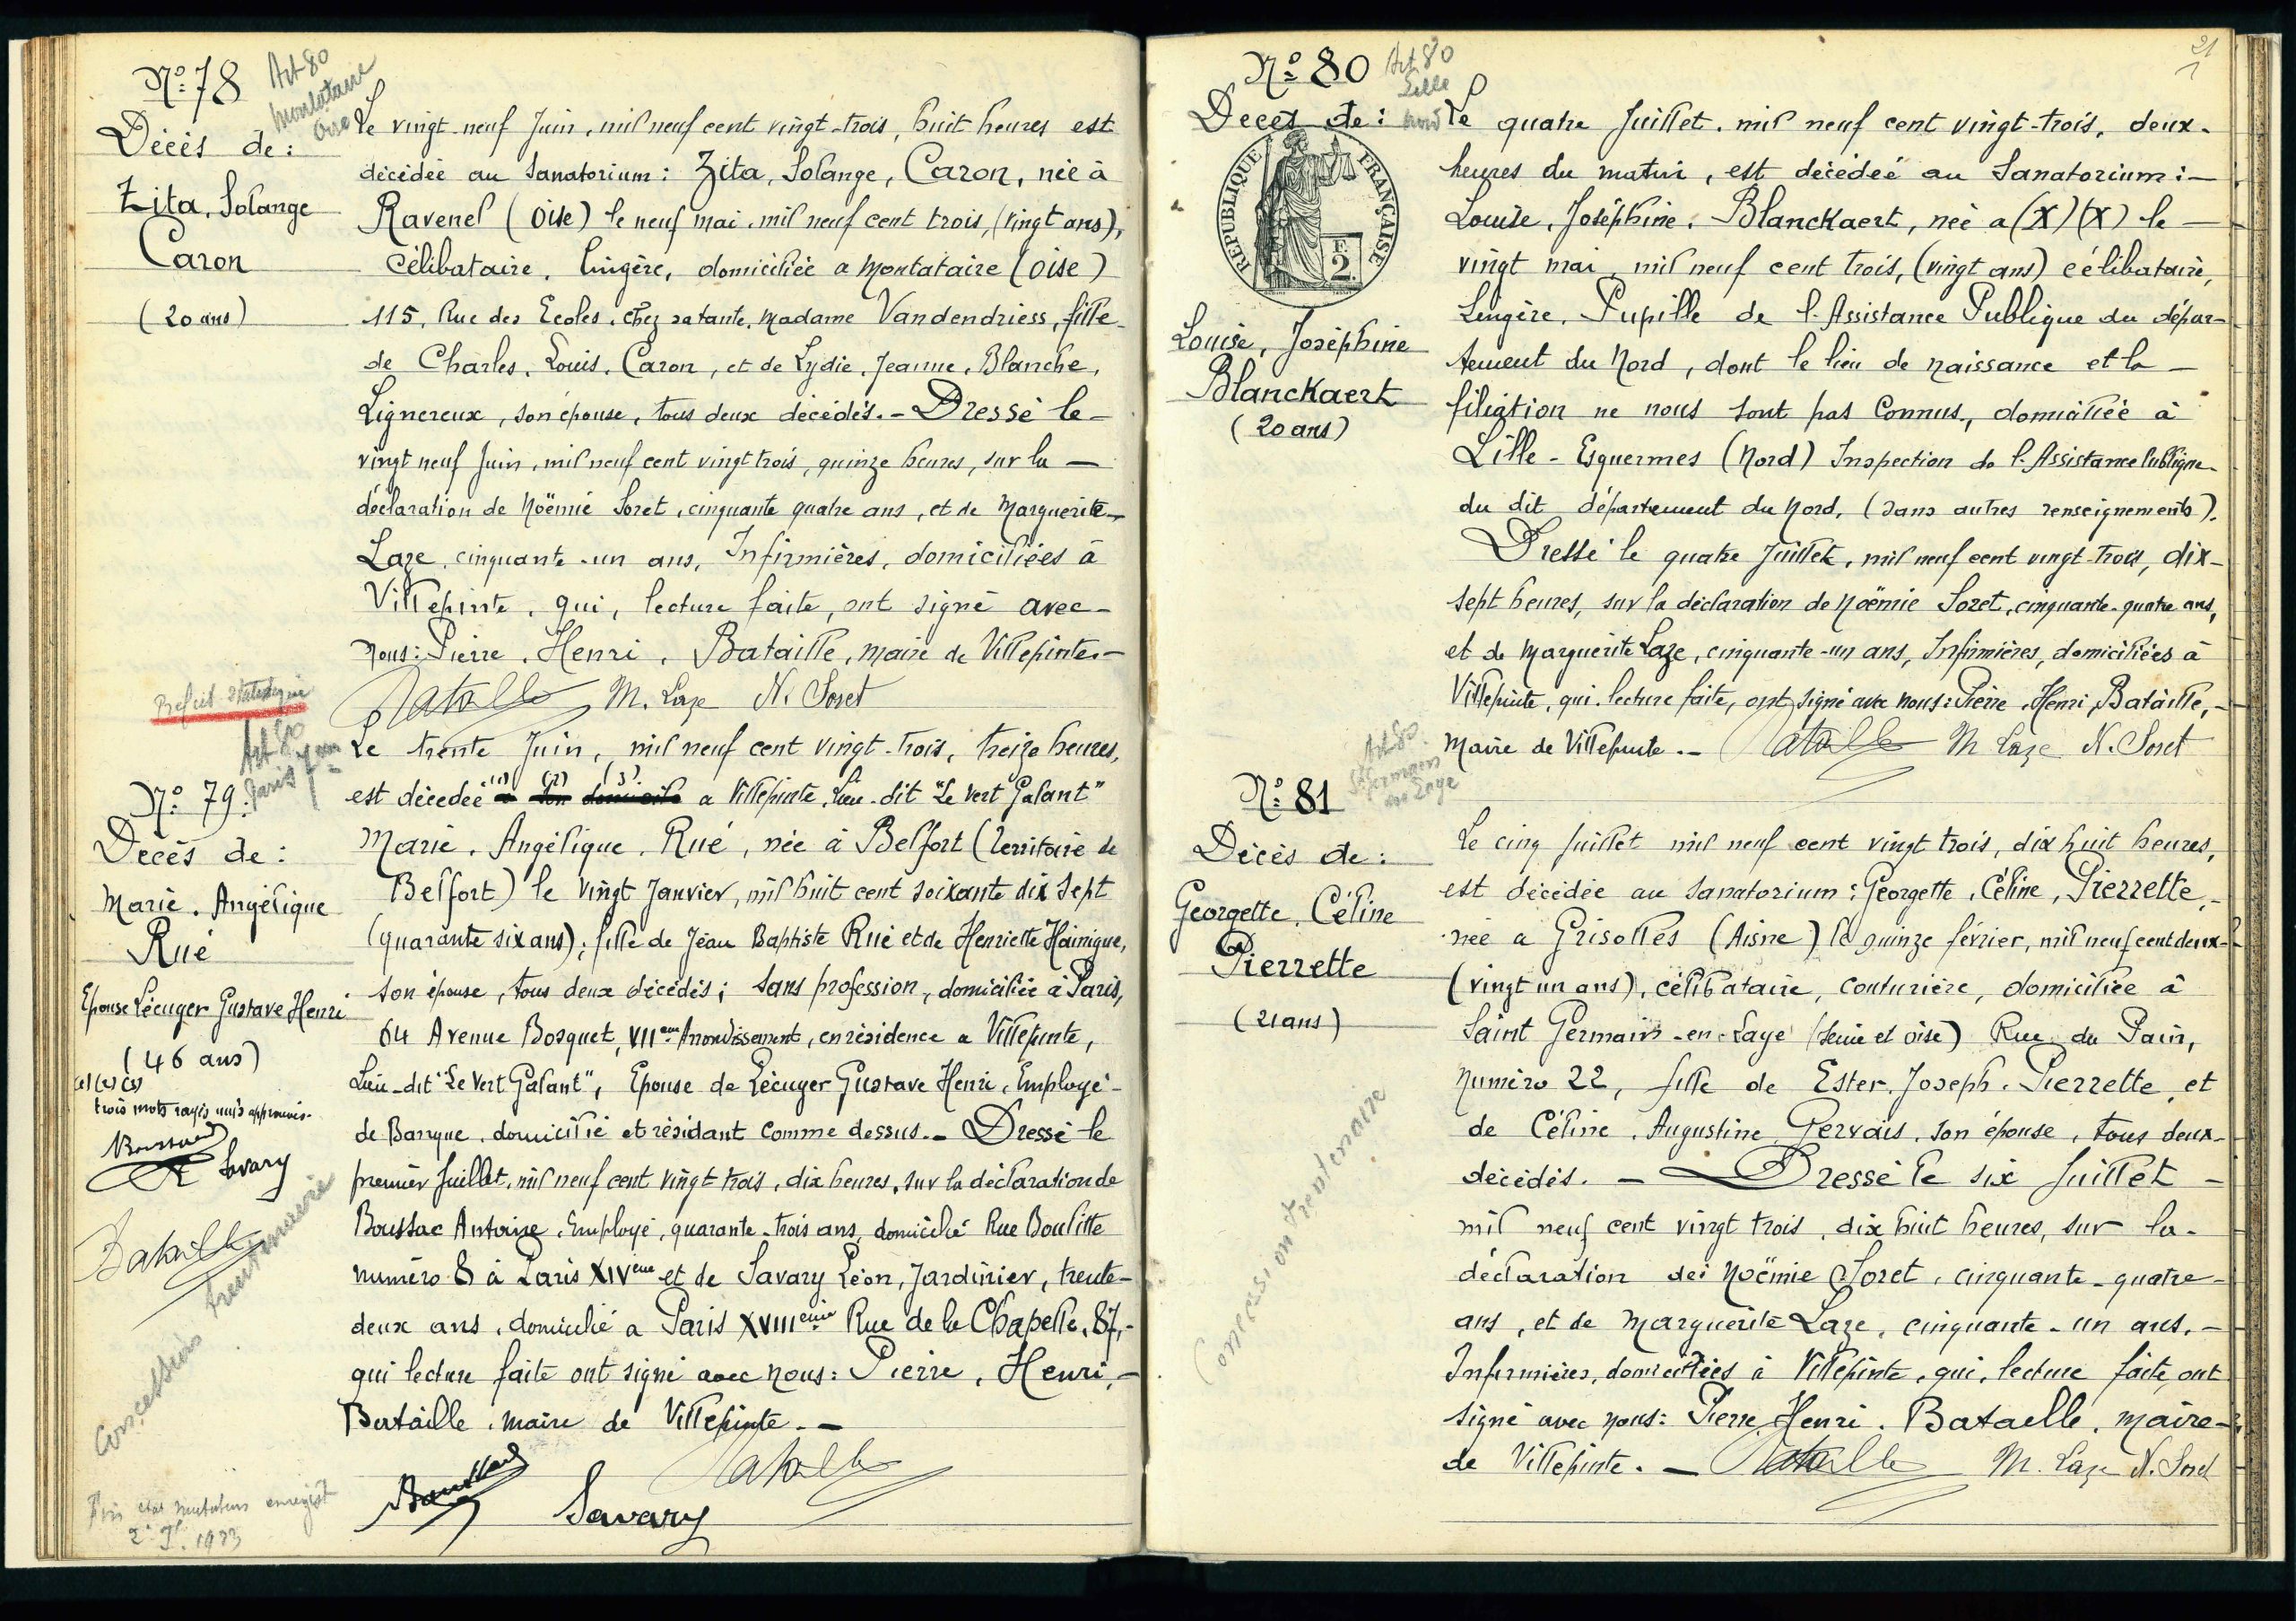 N° 78
Art 80
Montataire
Oise
Décès de :
Zita, Solange
Caron
(20 ans)
Le vingt-neuf Juin, mil neuf cent vingt-trois, huit heures est
décédée au Sanatorium : Zita, Solange, Caron, née à
Ravenel (Oise) le neuf mai, mil neuf cent trois, (vingt ans),
célibataire, lingère, domiciliée a Montataire (Oise)
115, Rue des Ecoles, chez sa tante, Madame Vandendriess, fille
de Charles, Louis, Caron, et de Lydie, Jeanne, Blanche,
Lignereux, son épouse, tous deux décédés. - Dressé le -
vingt neuf Juin, mil neuf cent vingt trois, quinze heures, sur la -
déclaration de Noëmie Soret, cinquante quatre ans, et de Marguerite -
Laze, cinquante-un ans, Infirmières, domiciliées à
Villepinte, qui, lecture faite, ont signé avec -
nous : Pierre, Henri, Bataille, maire de Villepinte. -
Bataille M. Laze N. Soret
Art 80
Paris 7em
N° 79.
Décès de :
Marie, Angélique
Rué
Epouse Lécuger Gustave Henri
(46 ans)
(1) (2) (3)
trois mots rayés nuls approuvés.
Savary
Bataille
Concession trentenaire
2e 1923
Le trente Juin, mil neuf cent vingt-trois, treize heures,
est décédée (1) à (2) son (3) domicile a Villepinte, Lieu-dit "Le Vert Galant"
Marie, Angélique, Rué, née à Belfort (Territoire de
Belfort) le vingt Janvier, mil huit cent soixante dix sept
(quarante six ans) ; fille de Jéan Baptiste Rué et de Henriette Hainigue,
son épouse, tous deux décédés ; sans profession, domiciliée à Paris,
64 Avenue Bosquet, VIIeme Arrondissement, en résidence a Villepinte,
Lieu-dit "Le Vert Galant", Epouse de Lécuger Gustave Henri, Employé -
de Banque, domicilié et résidant comme dessus. - Dressé le
premier Juillet, mil neuf cent vingt trois, dix heures, sur la déclaration de
Boussac Antoine, Employé, quarante-trois ans, domicilié Rue Boulitte
numéro 8 à Paris XIVeme et de Savary Léon, Jardinier, trente-
deux ans, domicilié a Paris XVIIIeme Rue de la Chapelle, 87, -
qui lecture faite ont signé avec nous : Pierre, Henri, -
Bataille, maire de Villepinte. -
Bataille
Savary
21
N° 80
Art 80
Lille
Nord
Décès de :
REPUBLIQUE FRANÇAISE
F.
2.
Louise, Joséphine
Blanckaert
(20 ans)
Le quatre Juillet, mil neuf cent vingt-trois, deux-
heures du matin, est décédée au Sanatorium : -
Louise, Joséphine, Blanckaert, née a (X) (X) le -
vingt mai, mil neuf cent trois, (vingt ans) célibataire,
Lingère, Pupille de l'Assistance Publique du dépar-
tement du Nord, dont le lieu de naissance et la -
filiation ne nous sont pas connus, domiciliée à
Lille - Esquermes (Nord) Inspection de l'Assistance Publique -
du dit département du Nord, (sans autres renseignements).
Dressé le quatre Juillet, mil neuf cent vingt-trois, dix-
sept heures, sur la déclaration de Noëmie Soret, cinquante-quatre ans,
et de Marguerite Laze, cinquante-un ans, Infirmières, domiciliées à
Villepinte, qui, lecture faite, ont signé avec nous : Pierre, Henri, Bataille, -
Maire de Villepinte. - Bataille M Laze N. Soret
Art 80.
St Germain
en Laye
N° 81
Décès de :
Georgette, Céline
Pierrette
(21 ans)
Concession trentenaire
Le cinq Juillet mil neuf cent vingt trois, dix huit heures,
est décédée au Sanatorium : Georgette, Céline, Pierrette, -
née a Grisolles (Aisne) le quinze février, mil neuf cent deux -
(vingt un ans), célibataire, couturière, domiciliée à
Saint Germain-en-Laye (Seine et Oise) Rue du Pain,
Numéro 22, fille de Ester, Joseph, Pierrette, et
de Céline, Augustine, Gervais, son épouse, tous deux -
décédés. - Dressé le six Juillet -
mil neuf cent vingt trois, dix huit heures, sur la -
déclaration de : Noëmie Soret, cinquante-quatre -
ans, et de Marguerite Laze, cinquante-un ans, -
Infirmières, domiciliées à Villepinte, qui, lecture faite, ont
signé avec nous : Pierre, Henri, Bataille, maire -
de Villepinte. - Bataille M. Laze N. Soret